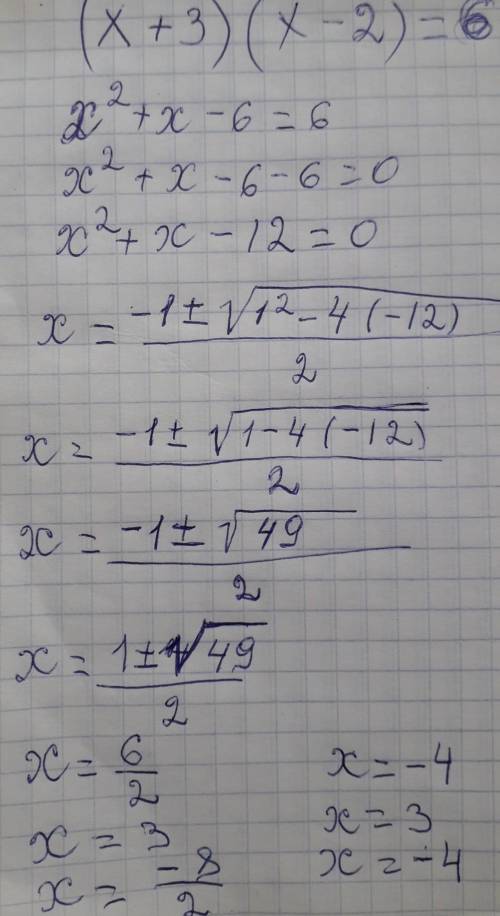 (x + 3)(x - 2) = 6
x² + x - 6 = 6
x² + x - 6 - 6 = 0
x² + x - 12 = 0
x = (-1 ± √(1² - 4(-12))) / 2
x = (-1 ± √(1 - 4(-12))) / 2
x = (-1 ± √49) / 2
x = (1 ± √49) / 2
x = 6/2
x = 3
x = -8/2
x = -4
x = 3
x = -4